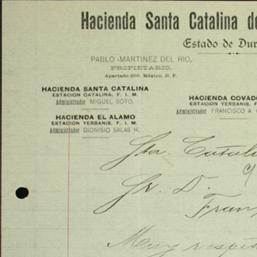 Hacienda Santa Catalina de
Estado de Dur
PABLO MARTINEZ DEL RIO,
PROPIETARIO.
Apartado 200. México, D. F.
HACIENDA SANTA CATALINA
ESTACION CATALINA, F. I. M.
Administrador MIGUEL SOTO.
HACIENDA COVADO
ESTACION YERBANIS, F.
Administrador FRANCISCO A
HACIENDA EL ALAMO
ESTACION YERBANIS, F. I. M.
Administrador DIONISIO SALAS H.
Sta Catali
Sr. D.
Fran
Muy